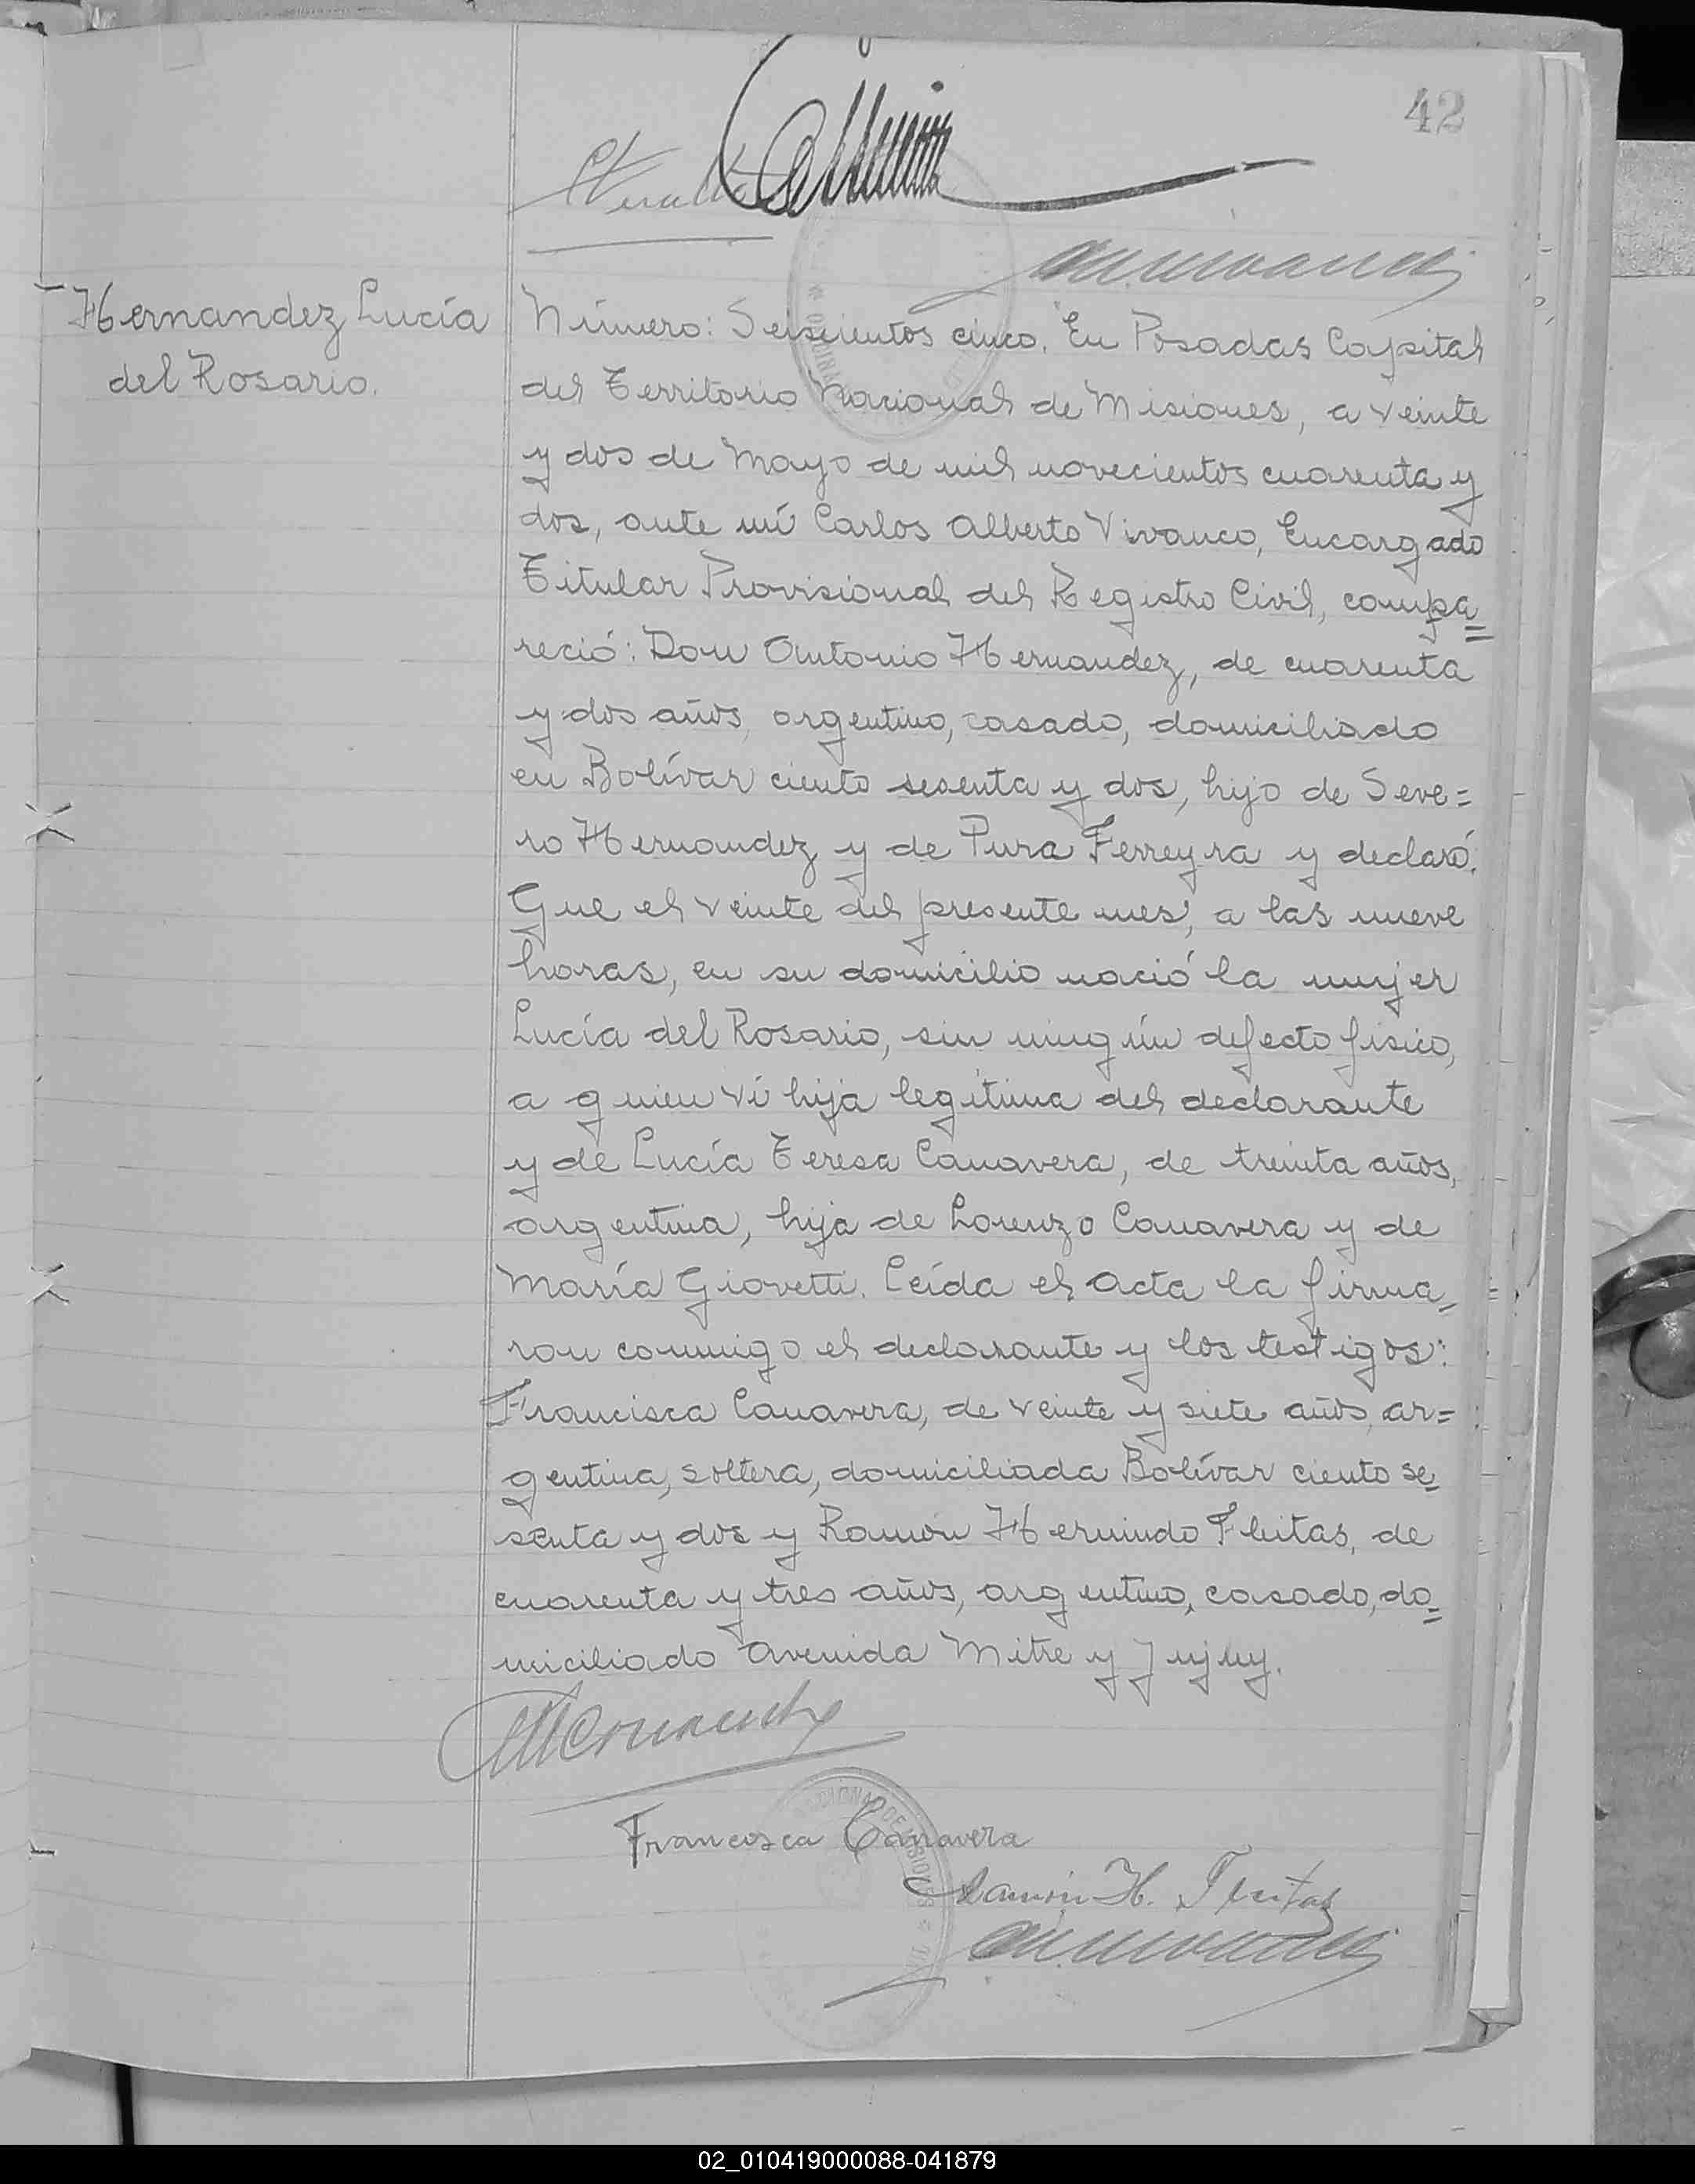 42
Hernandez Lucía
del Rosario.
Número: Seiscientos cinco. En Posadas Capital
del Territorio Nacional de Misiones, a veinte
y dos de Mayo de mil novecientos cuarenta y
dos, ante mí Carlos Alberto Vivanco, Encargado
Titular Provisional del Registro Civil, compa=
reció: Don Antonio Hernandez, de cuarenta
y dos años, argentino, casado, domiciliado
en Bolívar ciento sesenta y dos, hijo de Seve=
ro Hernandez y de Pura Ferreyra y declaró:
Que el veinte del presente mes, a las nueve
horas, en su domicilio nació la mujer
Lucía del Rosario, sin ningún defecto fisico,
a quien ví hija legítima del declarante
y de Lucía Teresa Canavera, de treinta años,
argentina, hija de Lorenzo Canavera y de
María Giovetti. Leída el acta la firma=
ron conmigo el declarante y los testigos:
Francisca Canavera, de veinte y siete años, ar=
gentina, soltera, domiciliada Bolívar ciento se=
senta y dos y Ramón Hermindo Fleitas, de
cuarenta y tres años, argentino, casado, do=
miciliado Avenida Mitre y Jujuy.
Francisca Canavera
Ramón H. Fleitas
02_010419000088-041879